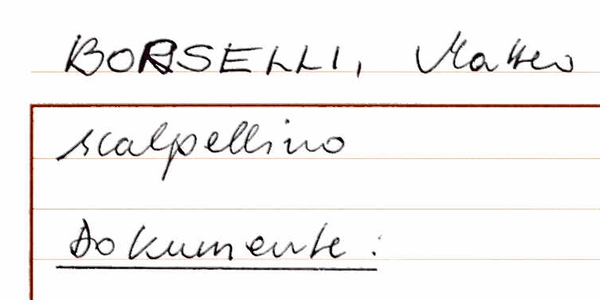 BORSELLI, Matteo
scalpellino
Dokumente: